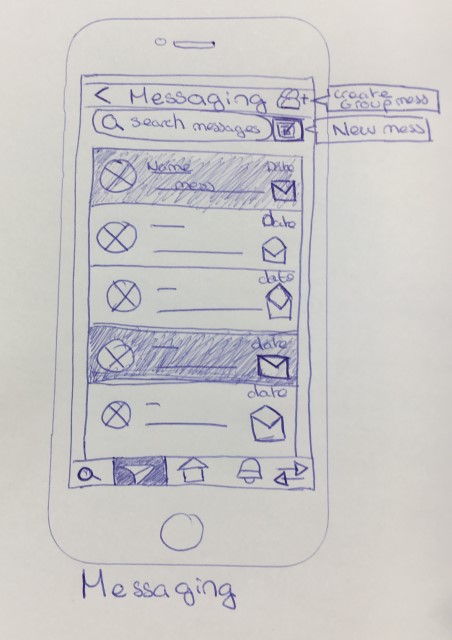 < Messaging
create
Group mess
search messages
New mess
Name
Date
mess
date
date
date
date
Messaging